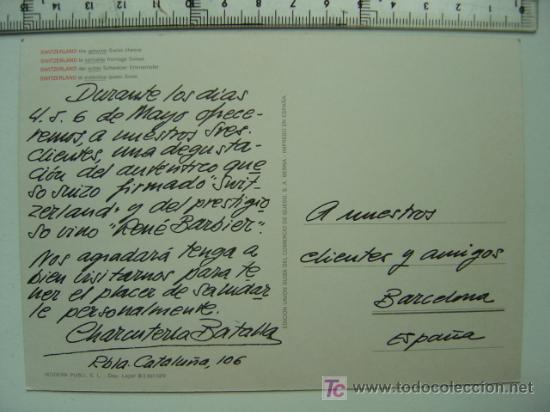 SWITZERLAND the genuine Swiss cheese
SWITZERLAND le véritable fromage Suisse
SWITZERLAND der echte Schweizer Emmentaler
SWITZERLAND el auténtico queso Suizo
Durante los dias
4. 5. 6 de Mayo ofrece-
remos, a nuestros Sres.
Clientes, una degusta-
ción del auténtico que
so suizo firmado "Swit-
zerland" y del prestigio
so vino "René Barbier".
Nos agradará tenga a
bien visitarnos para te
ner el placer de saludar
le personalmente.
Charcutería Batalla
Rbla. Cataluña, 106
MODERN PUBLI, S. L. - Dep. Legal
EDICION UNION SUIZA DEL COMERCIO DE QUESO, S. A. BERNA - IMPRESO EN ESPAÑA
A nuestros
clientes y amigos
Barcelona
España
todocoleccion